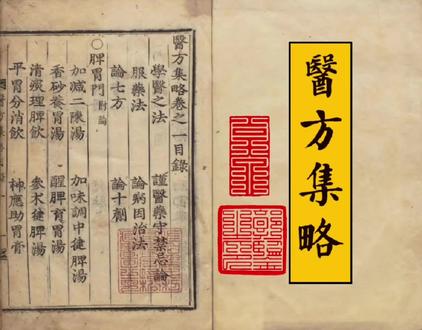 醫方集略
醫方集略卷之一目錄
學醫之法 謹醫藥守禁忌論
服藥法 論病因治法
論七方 論十劑
○脾胃門 附論
加减二陳湯 加味調中健脾湯
香砂養胃湯 醒脾育胃湯
清痰理脾飲 參朮健脾湯
平胃分消飲 神應助胃膏